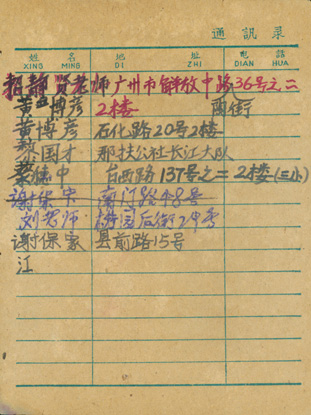 通訊录
姓 名 地 址 电 話
XING MING DI ZHI DIAN HUA
招静贤老师 广州市解放中路36号之二
黄博彦 2楼
黄博彦 石化路20号2楼
国才 那扶公社长江大队
德中 百西路137号之二 2楼(三小)
谢保中 南门路48号
刘老师 后街
谢保家 县前路15号
江